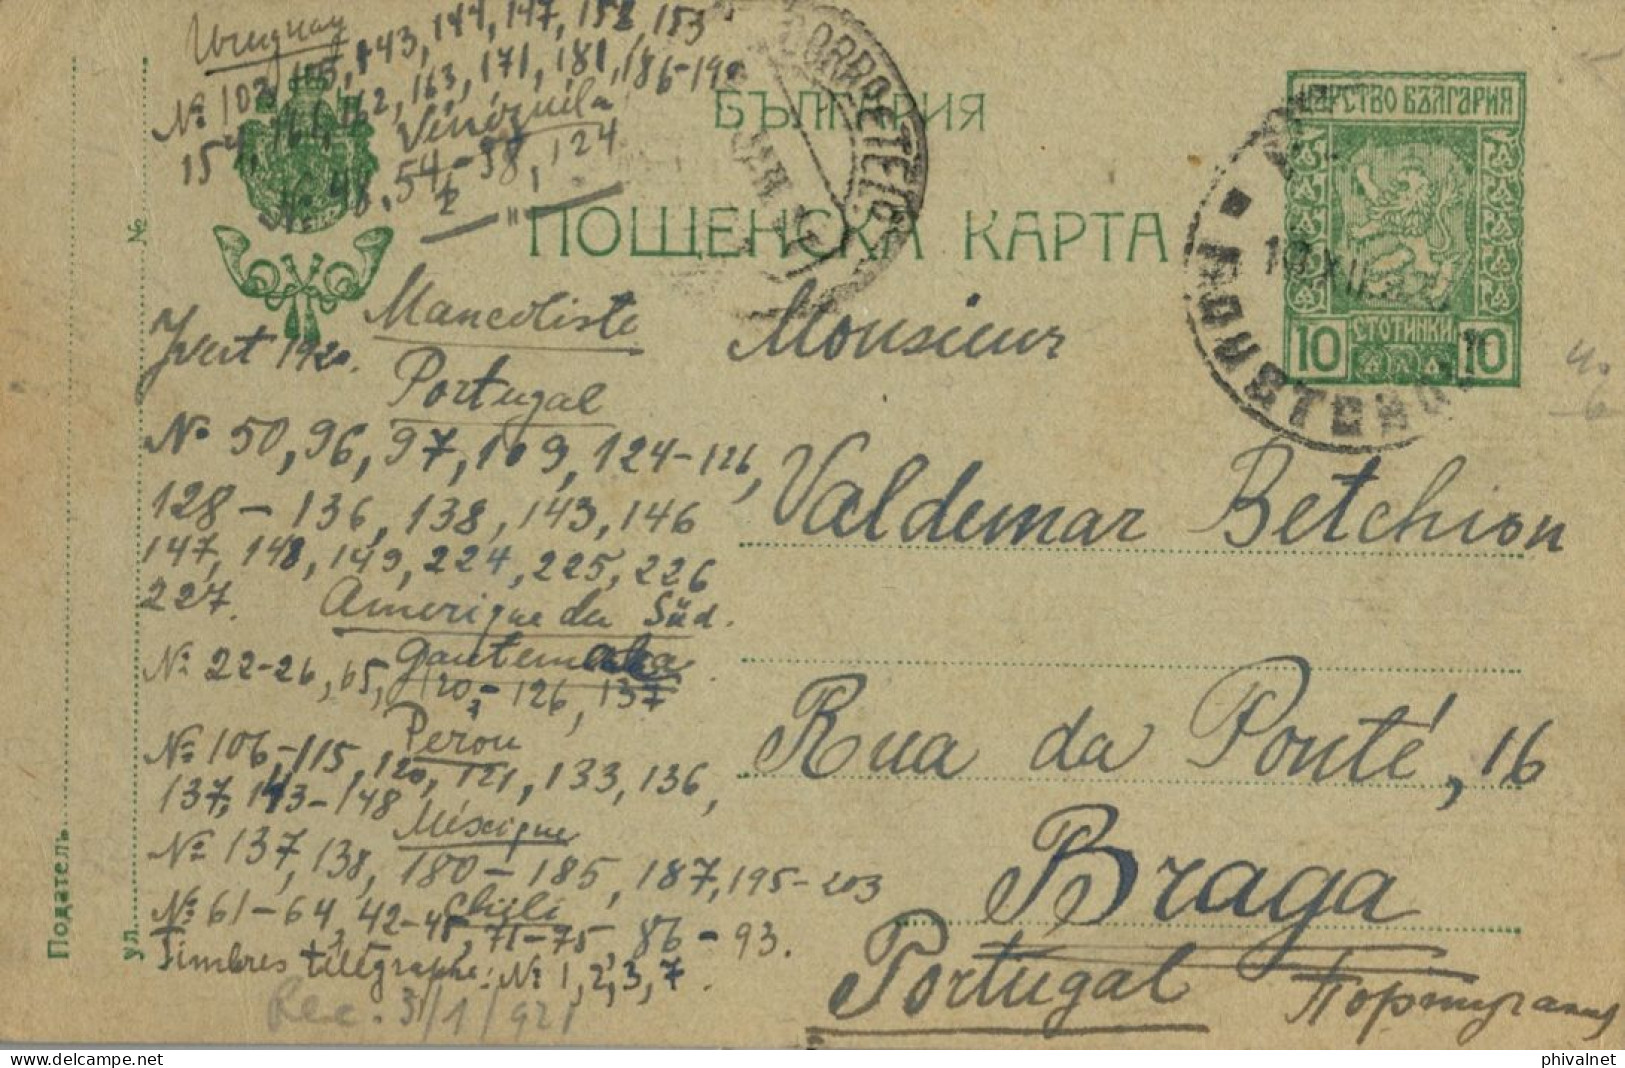 Uruguay
№ 103, 115, 143, 144, 147, 152, 153
154, 161, 162, 163, 171, 181, 186-19
Vénézuéla
№ 48, 54-58, 124
CORREIO E TELEG
БЪЛГАРИЯ
ПОЩЕНСКА КАРТА
ЦАРСТВО БЪЛГАРИЯ
10 СТОТИНКИ 10
Mancoliste
Yvert 1920.
Portugal
№ 50, 96, 97, 109, 124-126,
128 - 136, 138, 143, 146
147, 148, 149, 224, 225, 226
227.
Amerique du Süd.
Gautemala
№ 22-26, 65, 120 - 126, 137
Perou
№ 106,-115, 120, 121, 133, 136,
137, 143-148
Méxique
№ 137, 138, 180 - 185, 187, 195-203
Chili
№ 61-64, 42-45, 71-75, 86 - 93.
Timbres télégraphe: № 1, 2, 3, 7.
Rec. 3/1/921
Monsieur
Valdemar Betchion
Rua da Ponté, 16
Braga
Portugal
Португалия
Податель
ул.
№
phivalnet